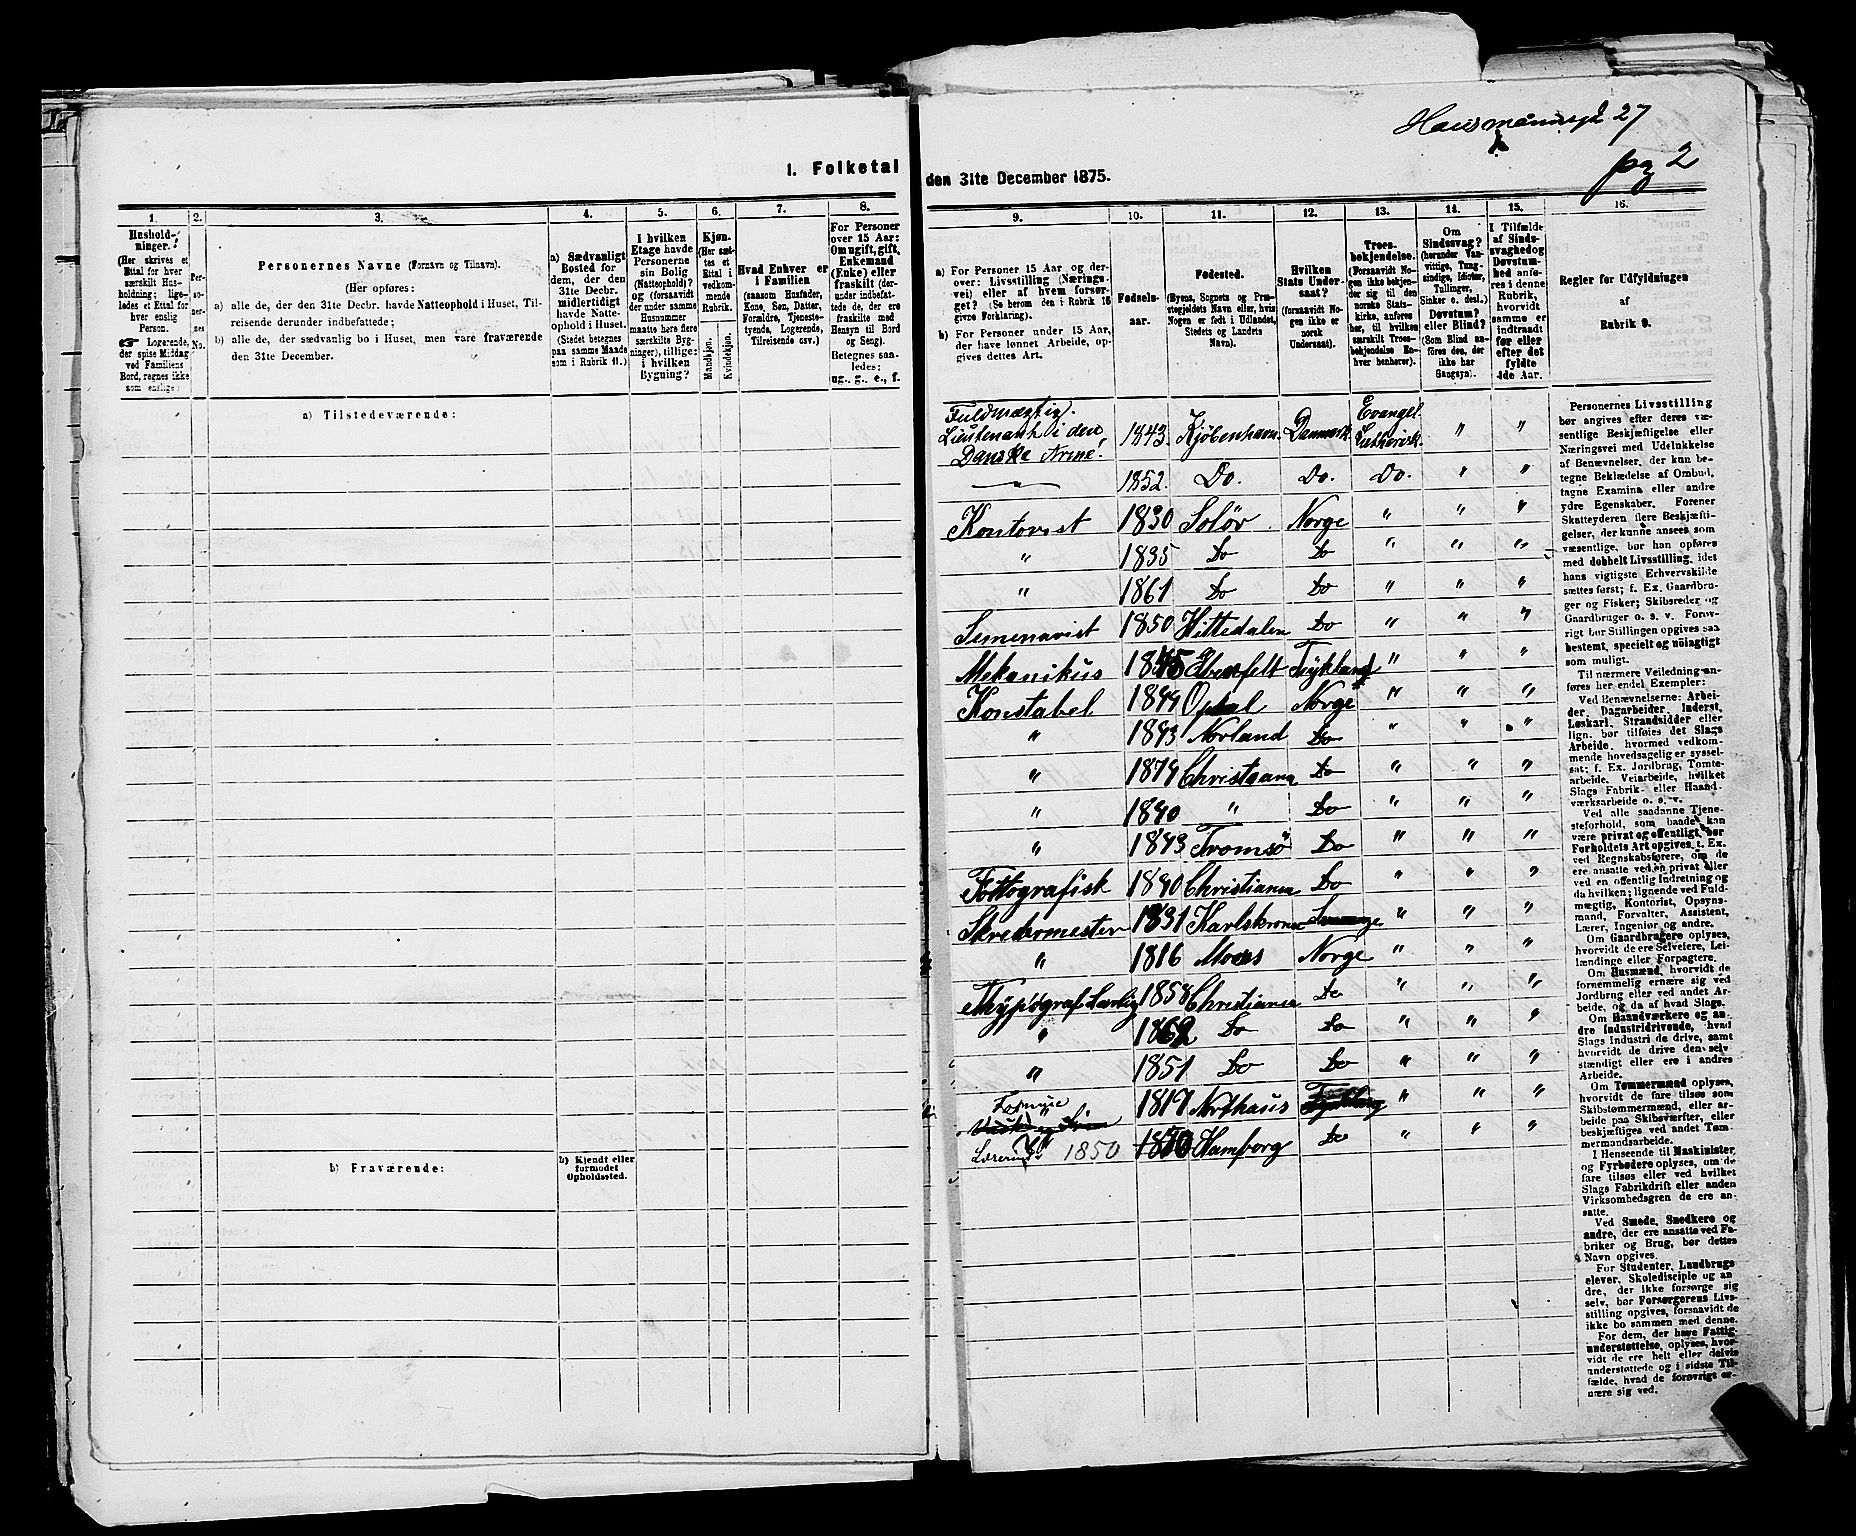 Hausmannsgd 27
pag 2
1. Folketal
den 31te December 1875.
1.
2.
3.
4.
5.
6.
7.
8.
Hushold-
ninger.
(Her skrives et
Ettal for hver
særskilt Hus-
holdning; lige-
ledes et Ettal for
hver enslig
Person.
☞ Logerende,
der spise Middag
ved Familiens
Bord, regnes ikke
som enslige.)
Per-
so-
ner-
nes
No.
Personernes Navne (Fornavn og Tilnavn).
(Her opføres:
a) alle de, der den 31te Decbr. havde Natteophold i Huset, Til-
reisende derunder indbefattede;
b) alle de, der sædvanlig bo i Huset, men vare fraværende
den 31te December.
a) Sædvanligt
Bosted for
dem, der den
31te Decbr.
midlertidigt
havde Natte-
ophold i Huset.
(Stedet betegnes
paa samme Maade
som i Rubrik 11.)
I hvilken
Etage havde
Personerne
sin Bolig
(Natteophold)?
og (forsaavidt
der under samme
Husnummer
maatte høre flere
særskilte Byg-
ninger), tillige:
i hvilken
Bygning?
Kjøn.
(Her sæt-
tes et
Ettal i
vedkom-
mende
Rubrik.
Mandkjøn.
Kvindekjøn.
Hvad Enhver er
i Familien
(saasom Husfader,
Kone, Søn, Datter,
Forældre, Tjeneste-
tyende, Logerende,
Tilreisende osv.)
For Personer
over 15 Aar:
Om ugift, gift,
Enkemand
(Enke) eller
fraskilt (der-
under indbefat-
tede de, der ere
fraskilte med
Hensyn til Bord
og Seng).
Betegnes saa-
ledes:
ug., g., e., f.
a) Tilstedeværende:
b) Fraværende:
b) Kjendt eller
formodet
Opholdssted.
9.
10.
11.
12.
13.
14.
15.
16.
a) For Personer 15 Aar og der-
over: Livsstilling (Nærings-
vei) eller af hvem forsør-
get? (Se herom den i Rubrik 16
givne Forklaring).
b) For Personer under 15 Aar,
der have lønnet Arbeide, op-
gives dettes Art.
Fødsels-
aar.
Fødested.
(Byens, Sognets og Præ-
stegjeldets Navn eller, hvis
Nogen er født i Udlandet,
Stedets og Landets
Navn).
Hvilken
Stats Under-
saat?
(forsaavidt No-
gen ikke er
norsk
Undersaat).
Troes-
bekjendelse.
(Forsaavidt No-
gen ikke bekjen-
der sig til den
norske Stats-
kirke, anføres
her, til hvilken
særskilt Troes-
bekjendelse En-
hver henhører).
Om
Sindssvag?
(herunder Van-
vittige, Tung-
sindige, Idioter,
Tullinger,
Sinker o. desl.)
Døvstum?
eller Blind?
(Som Blind an-
føres den, der
ikke har
Gangsyn).
I Tilfælde
af Sinds-
svaghed og
Døvstum-
hed anfø-
res i denne
Rubrik,
hvorvidt
samme er
indtraadt
før eller
efter det
fyldte
4de Aar.
Regler for Udfyldningen
af
Rubrik 9.
Fuldmægtig.
Lieutenant i den
Danske Arme! 1843. Kjøbenhavn. Danmark. Evangel. Lutherisk. " "
" 1852. Do. Do. Do. " "
Kontorist 1830 Soløv Norge " " "
" 1835 Do Do " " "
" 1861 Do Do " " "
Semenarist 1850 Hittedalen Do " " "
Mekanikus 1845 Tyskland " " "
Konstabel 1849 Opdal Norge " " "
" 1843 Norland Do " " "
" 1874 Christiania Do " " "
" 1840 " Do " " "
" 1843 Tromsö Do " " "
Fottografisk 1840 Christiania Do " " "
Skredermester 1831 Karlskrona " " "
" 1816 Moss Norge " " "
Thypograf 1858 Christiania Do " " "
" 1862 Do Do " " "
" 1851 Do Do " " "
Formue 1819 Northaus Tyskland " " "
Lærerinde 1850 1850 Hamborg Do " " "
Personernes Livsstilling
bør angives efter deres væ-
sentlige Beskjæftigelse eller
Næringsvei med Udelukkelse
af Benævnelser, der kun be-
tegne Beklædelse af Ombud,
tagne Examina eller andre
ydre Egenskaber. Forener
Skatteyderen flere Beskjæfti-
gelser, der kunne ansees som
væsentlige, bør han opføres
med dobbelt Livsstilling, idet
hans vigtigste Erhvervskilde
sættes først; f. Ex. Gaardbru-
ger og Fisker; Skibsreder og
Gaardbruger o. s. v. Forøv-
rigt bør Stillingen opgives saa
bestemt, specielt og nøiagtigt
som muligt.
Til nærmere Veiledning an-
føres her endel Exempler:
Ved Benævnelserne: Arbei-
der, Dagarbeider, Inderst,
Løskarl, Strandsidder eller
lign. bør tilføies det Slags
Arbeide, hvormed vedkom-
mende hovedsagelig er syssel-
sat; f. Ex. Jordbrug, Tomte-
arbeide, Veiarbeide, hvilket
Slags Fabrik- eller Haand-
værksarbeide o. s. v.
Ved alle saadanne Tjene-
steforhold, som baade kan
være privat og offentligt, bør
Forholdets Art opgives, t. Ex.
ved Regnskabsførere, om de
ere ansatte ved en privat eller
ved en offentlig Indretning og
da hvilken; lignende ved Fuld-
mægtig, Kontorist, Opsyns-
mand, Forvalter, Assistent,
Lærer, Ingeniør og andre.
Om Gaardbrugere oplyses,
hvorvidt de ere Selveiere, Lei-
lændinge eller Forpagtere.
Om Husmænd, hvorvidt de
fornemmelig ernære sig ved
Jordbrug eller ved andet Ar-
beide, og da af hvad Slags.
Om Haandværkere og an-
dre Industridrivende, hvad
Slags Industri de drive, samt
hvorvidt de drive den selv-
stændigt eller ere i andres
Arbeide.
Om Tømmermænd oplyses,
hvorvidt de fare tilsøs som
Skibstømmermænd, eller ar-
beide paa Skibsværfter, eller
beskjæftiges ved andet Tøm-
mermandsarbeide.
I Henseende til Maskinister
og Fyrbødere oplyses, om de
fare tilsøs eller ved hvilket
Slags Fabrikdrift eller anden
Virksomhedsgren de ere an-
satte.
Ved Smede, Snedkere og
andre, der ere ansatte ved Fa-
briker og Brug, bør dettes
Navn opgives.
For Studenter, Landbrugs-
elever, Skoledisciple og an-
dre, der ikke forsørge sig
selv, bør Forsørgerens Livs-
stilling opgives, forsaavidt de
ikke bo sammen med denne.
For dem, der have Fattig-
understøttelse, oplyses, hvor-
vidt de ere helt eller delvis
understøttede og i sidste Til-
fælde, hvad de forøvrigt er-
nære sig ved.